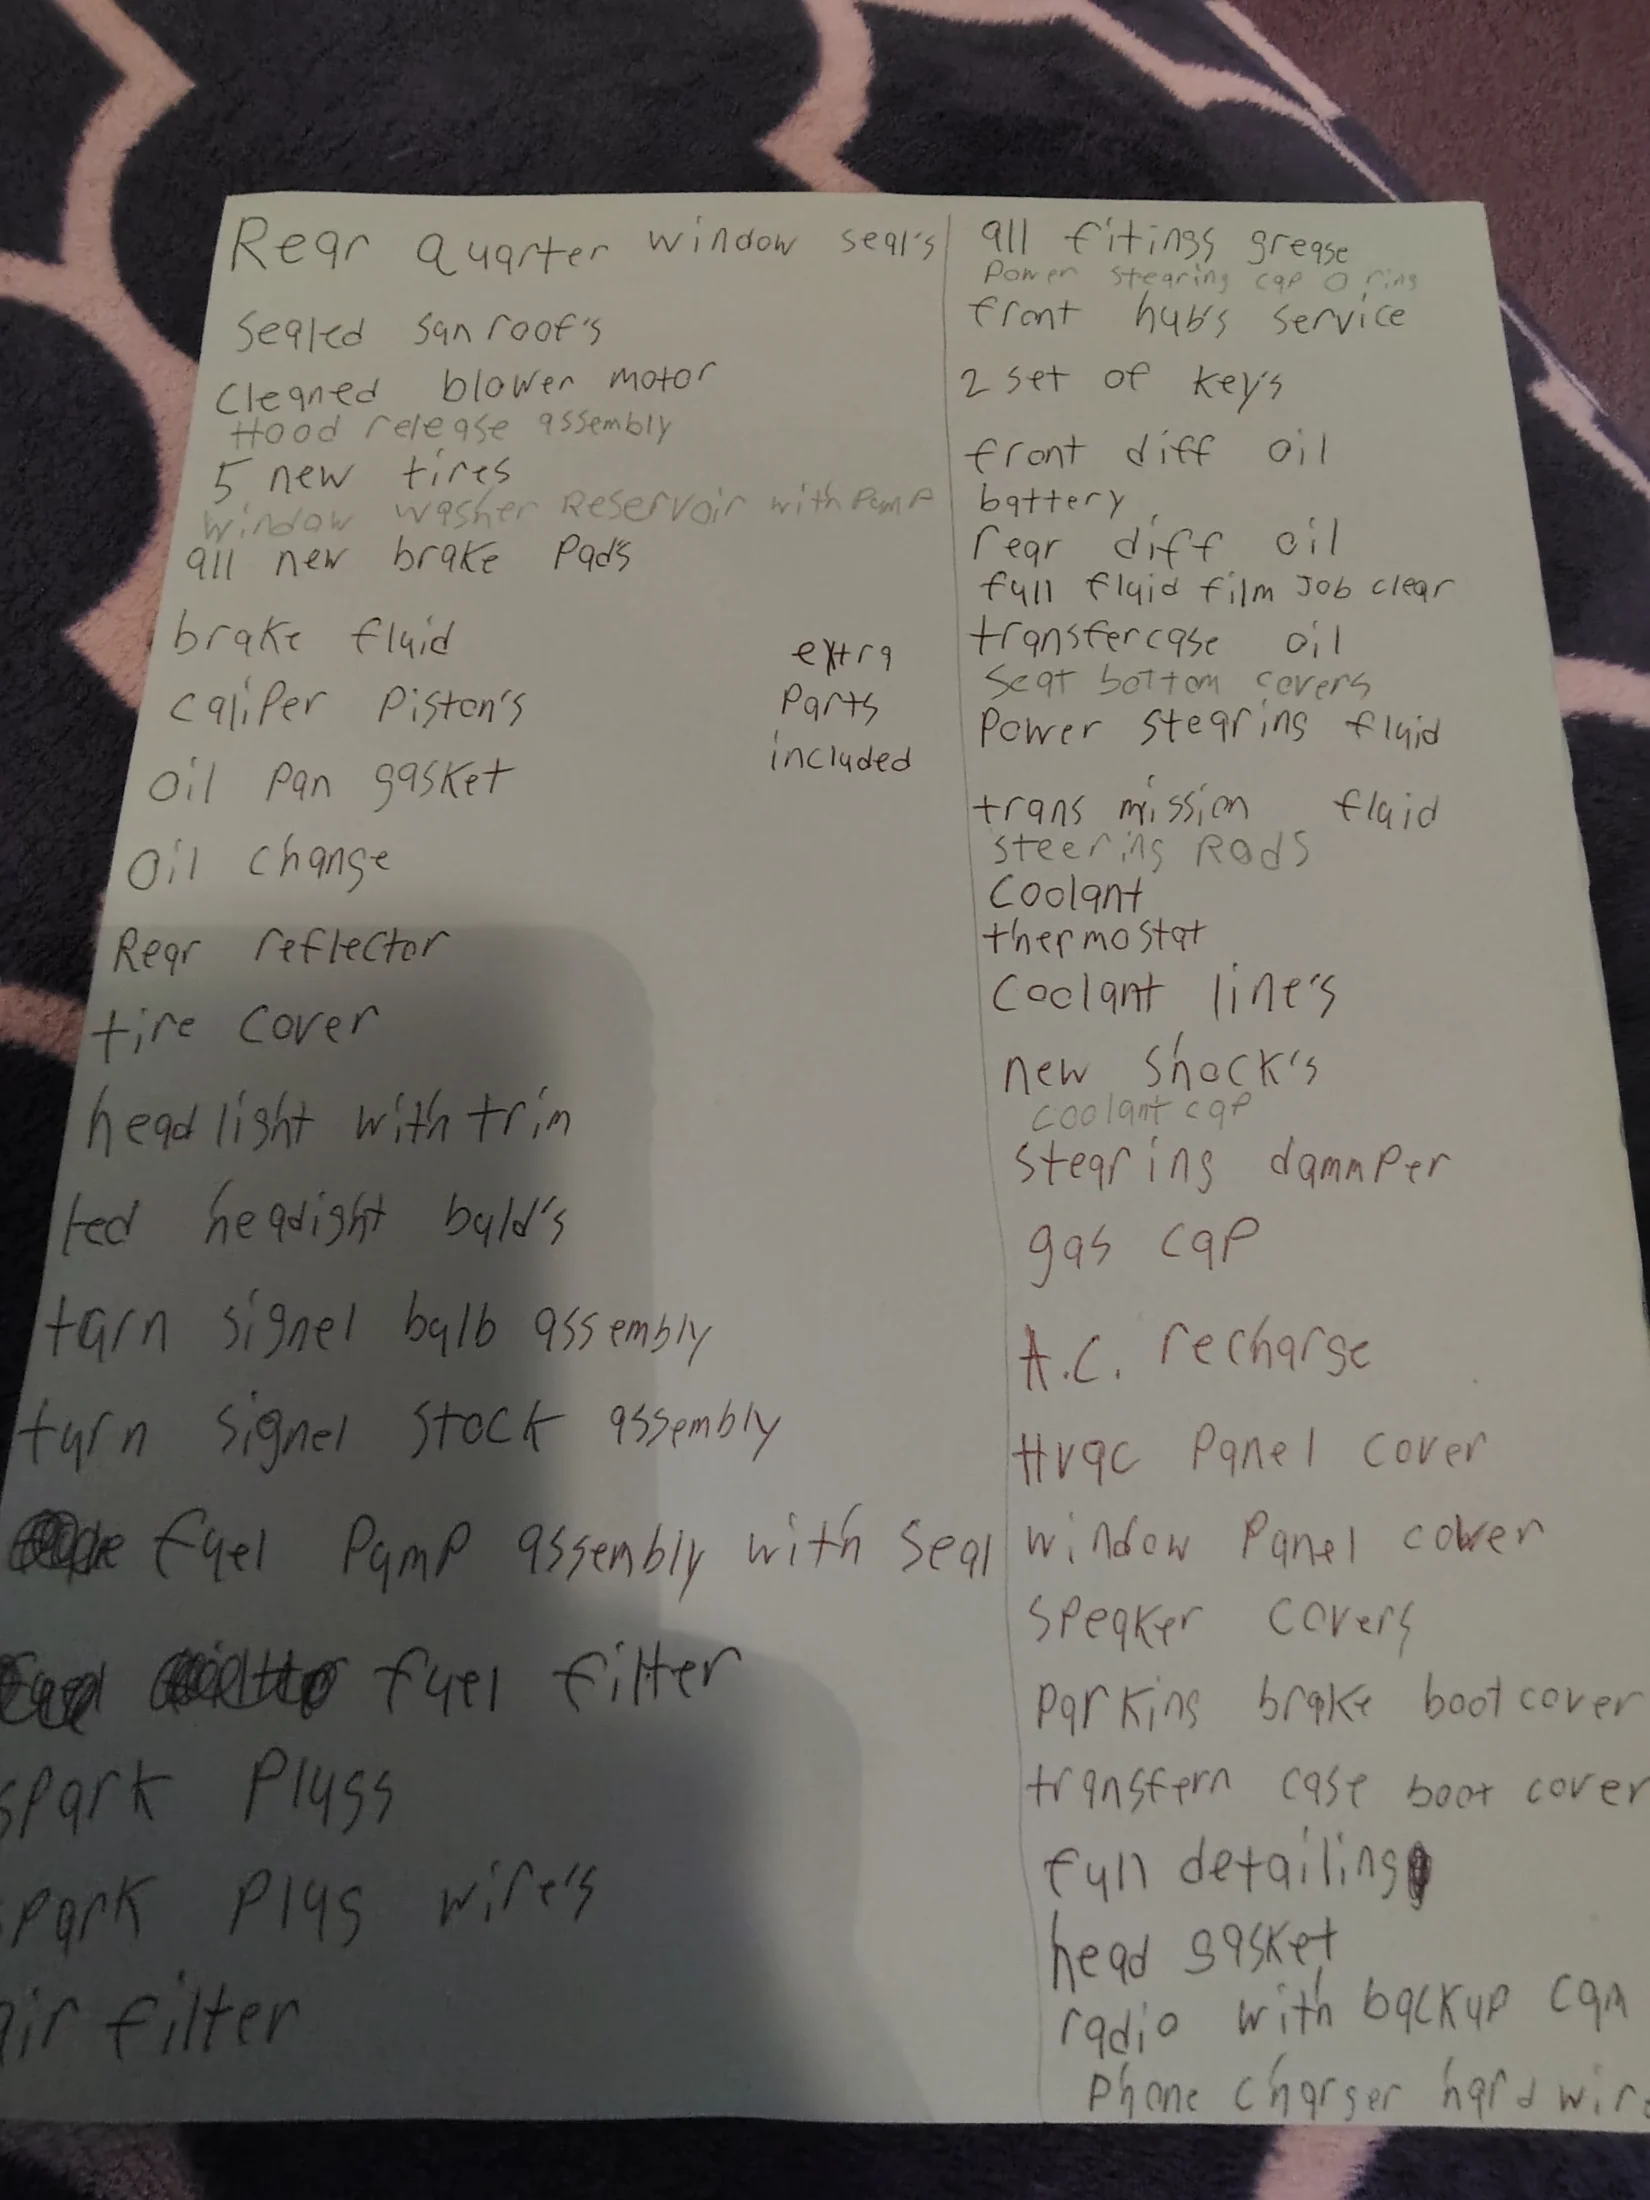 Rear quarter window seal's
Sealed sunroof's
Cleaned blower motor
Hood release assembly
5 new tires
Window washer Reservoir with Pump
all new brake Pad's
brake fluid
caliper Piston's
oil pan gasket
oil change
Rear reflector
tire cover
headlight with trim
led headight buld's
turn signel bulb assembly
turn signel stock assembly
fuel Pump assembly with seal
fuel filter
spark Plugs
spark Plug wire's
air filter
extra
Parts
included
all fitings grease
Power stearing cap O ring
front hub's service
2 set of key's
front diff oil
battery
rear diff oil
full fluid film Job clear
transfercase oil
Seat bottom covers
Power stearing fluid
trans mission fluid
steering Rods
Coolant
thermostat
Coolant line's
new shock's
coolant cap
stearing dammper
gas cap
A.C. recharge
Hvac Panel cover
window Panel cover
speaker covers
parking brake boot cover
transfern case boot cover
full detailing
head gasket
radio with backup cam
Phone charger hard wire